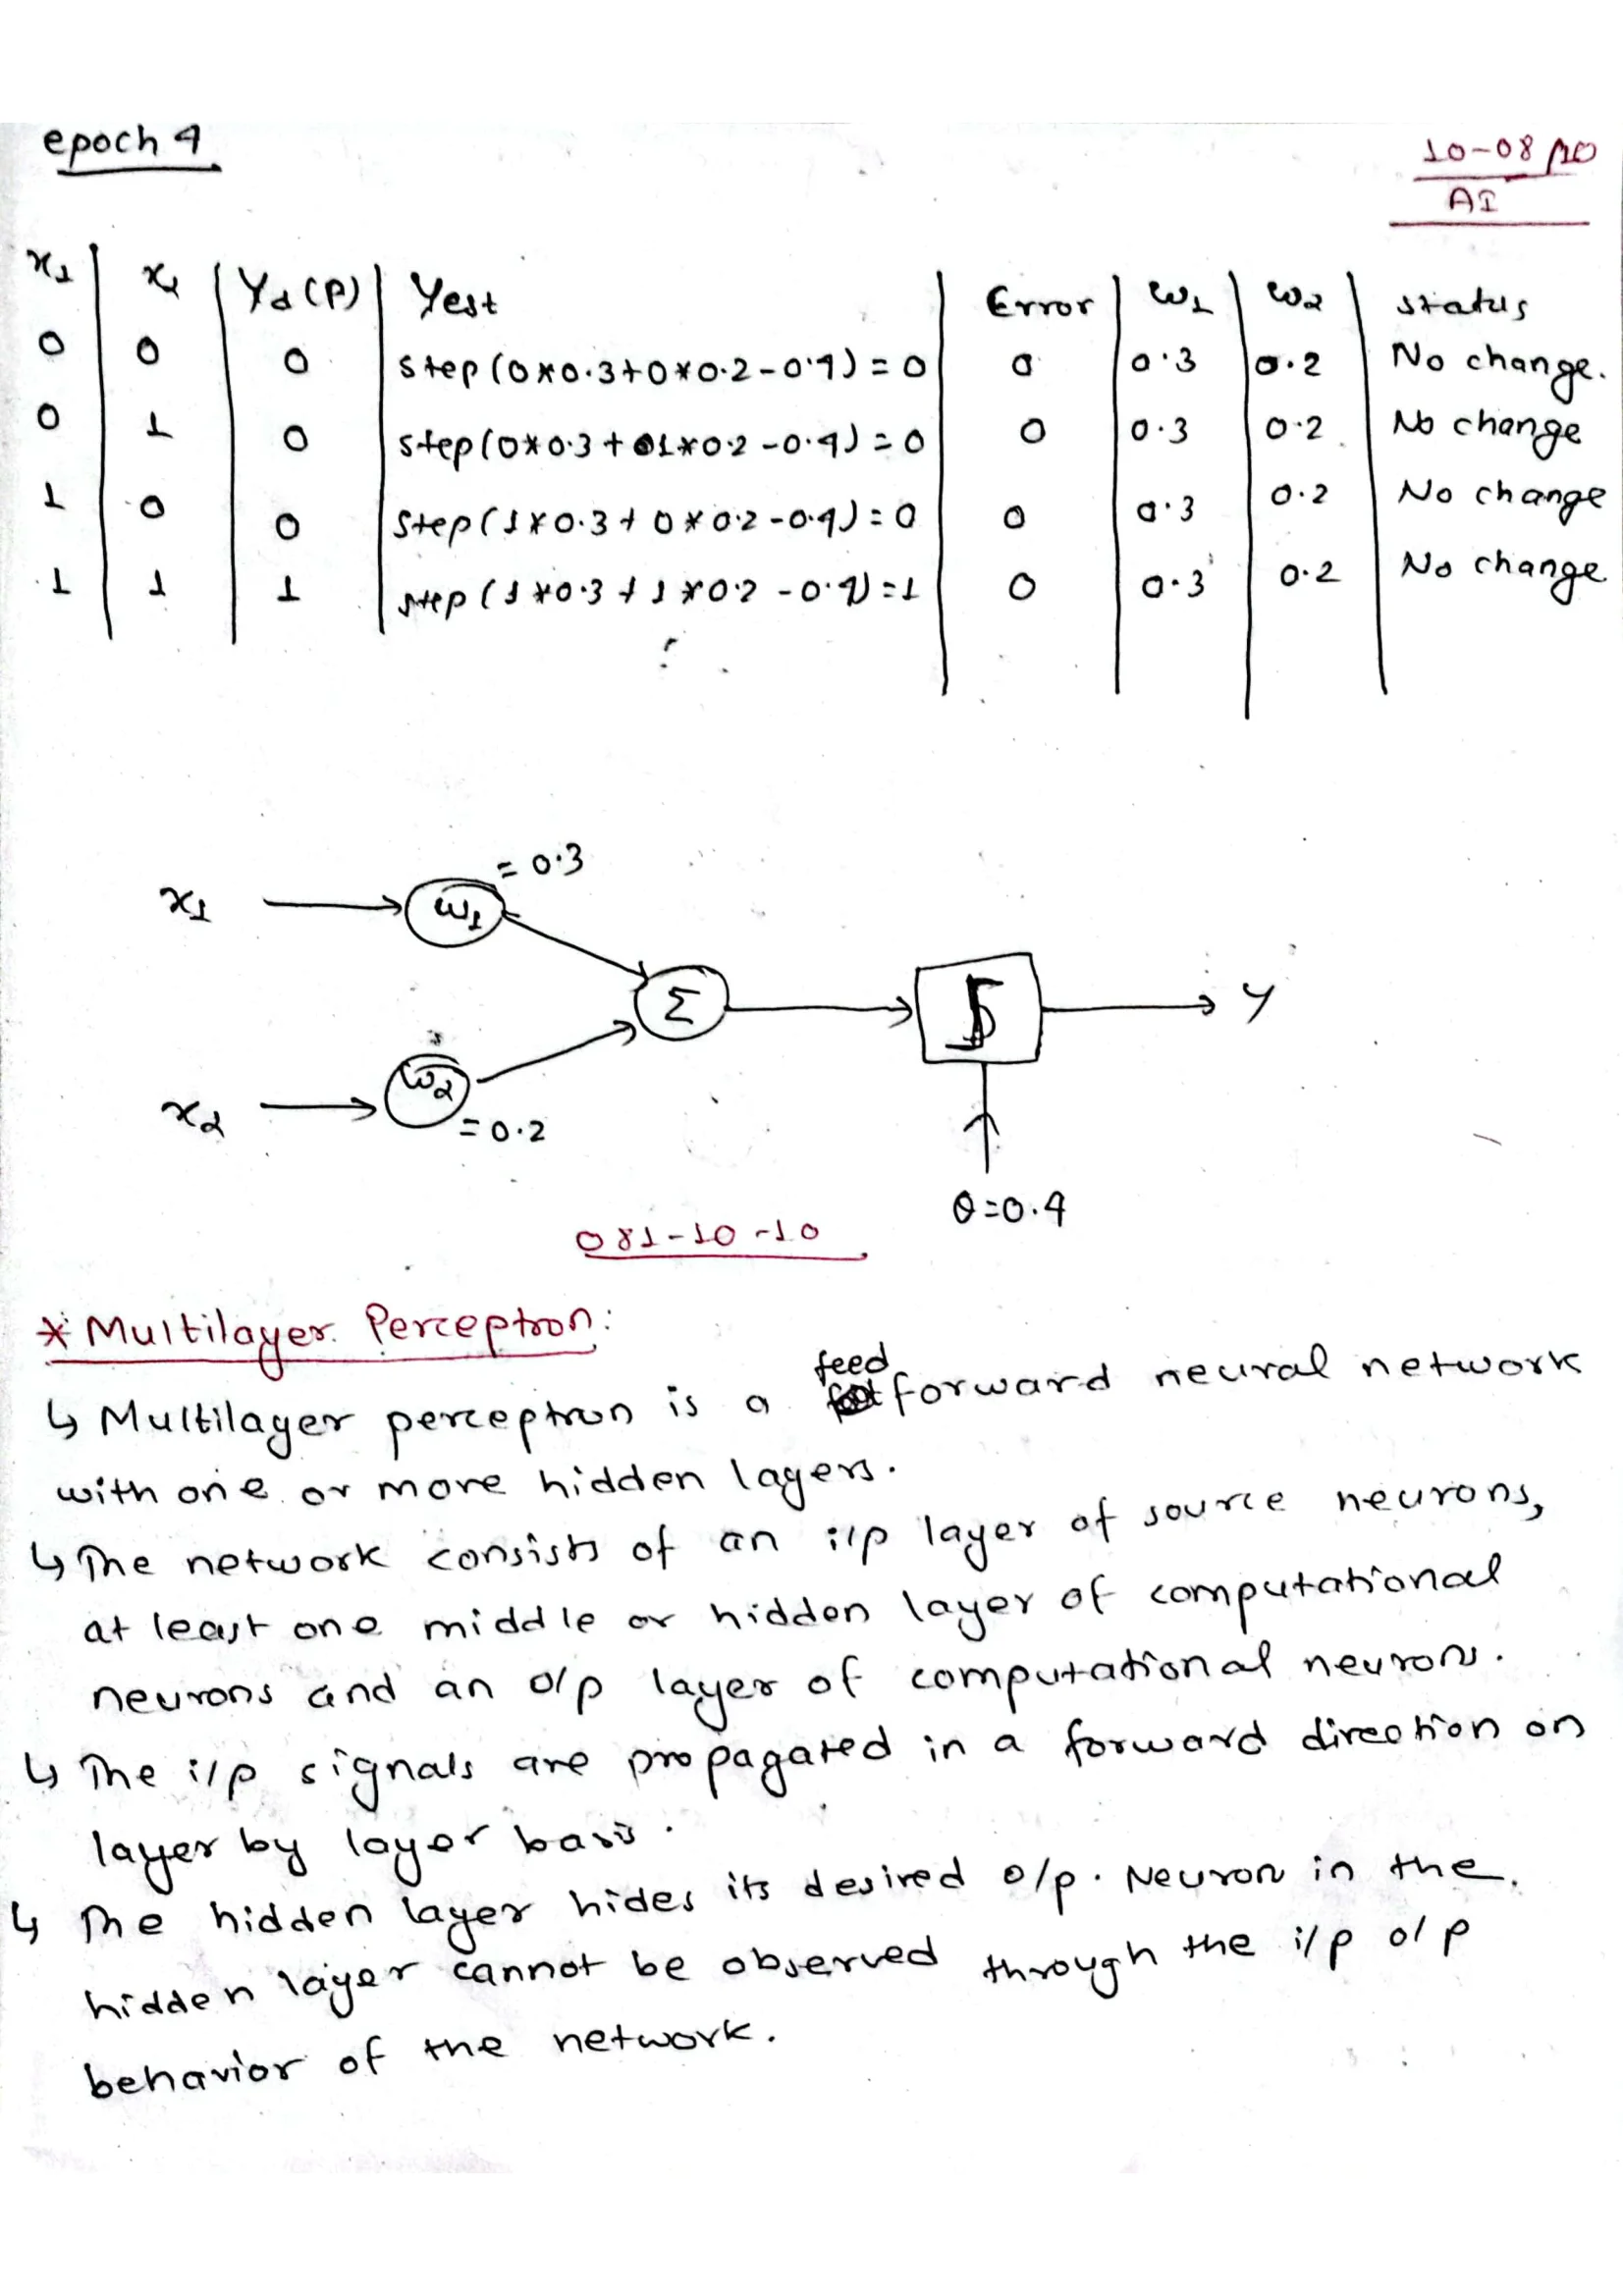 epoch 4
10-08
AI
x1 | x2 | Yd(P) | Yest | Error | w1 | w2 | status
0 | 0 | 0 | step(0*0.3+0*0.2-0.4)=0 | 0 | 0.3 | 0.2 | No change.
0 | 1 | 0 | step(0*0.3+1*0.2-0.4)=0 | 0 | 0.3 | 0.2 | No change
1 | 0 | 0 | step(1*0.3+0*0.2-0.4)=0 | 0 | 0.3 | 0.2 | No change
1 | 1 | 1 | step(1*0.3+1*0.2-0.4)=1 | 0 | 0.3 | 0.2 | No change
= 0.3
x1
w1
Σ
y
w2
x2
= 0.2
θ=0.4
081-10-10
* Multilayer Perceptron:
↳ Multilayer perceptron is a feed forward neural network
with one or more hidden layers.
↳ The network consists of an i/p layer of source neurons,
at least one middle or hidden layer of computational
neurons and an o/p layer of computational neurons.
↳ The i/p signals are propagated in a forward direction on
layer by layer basis.
↳ The hidden layer hides its desired o/p. Neuron in the
hidden layer cannot be observed through the i/p o/p
behavior of the network.